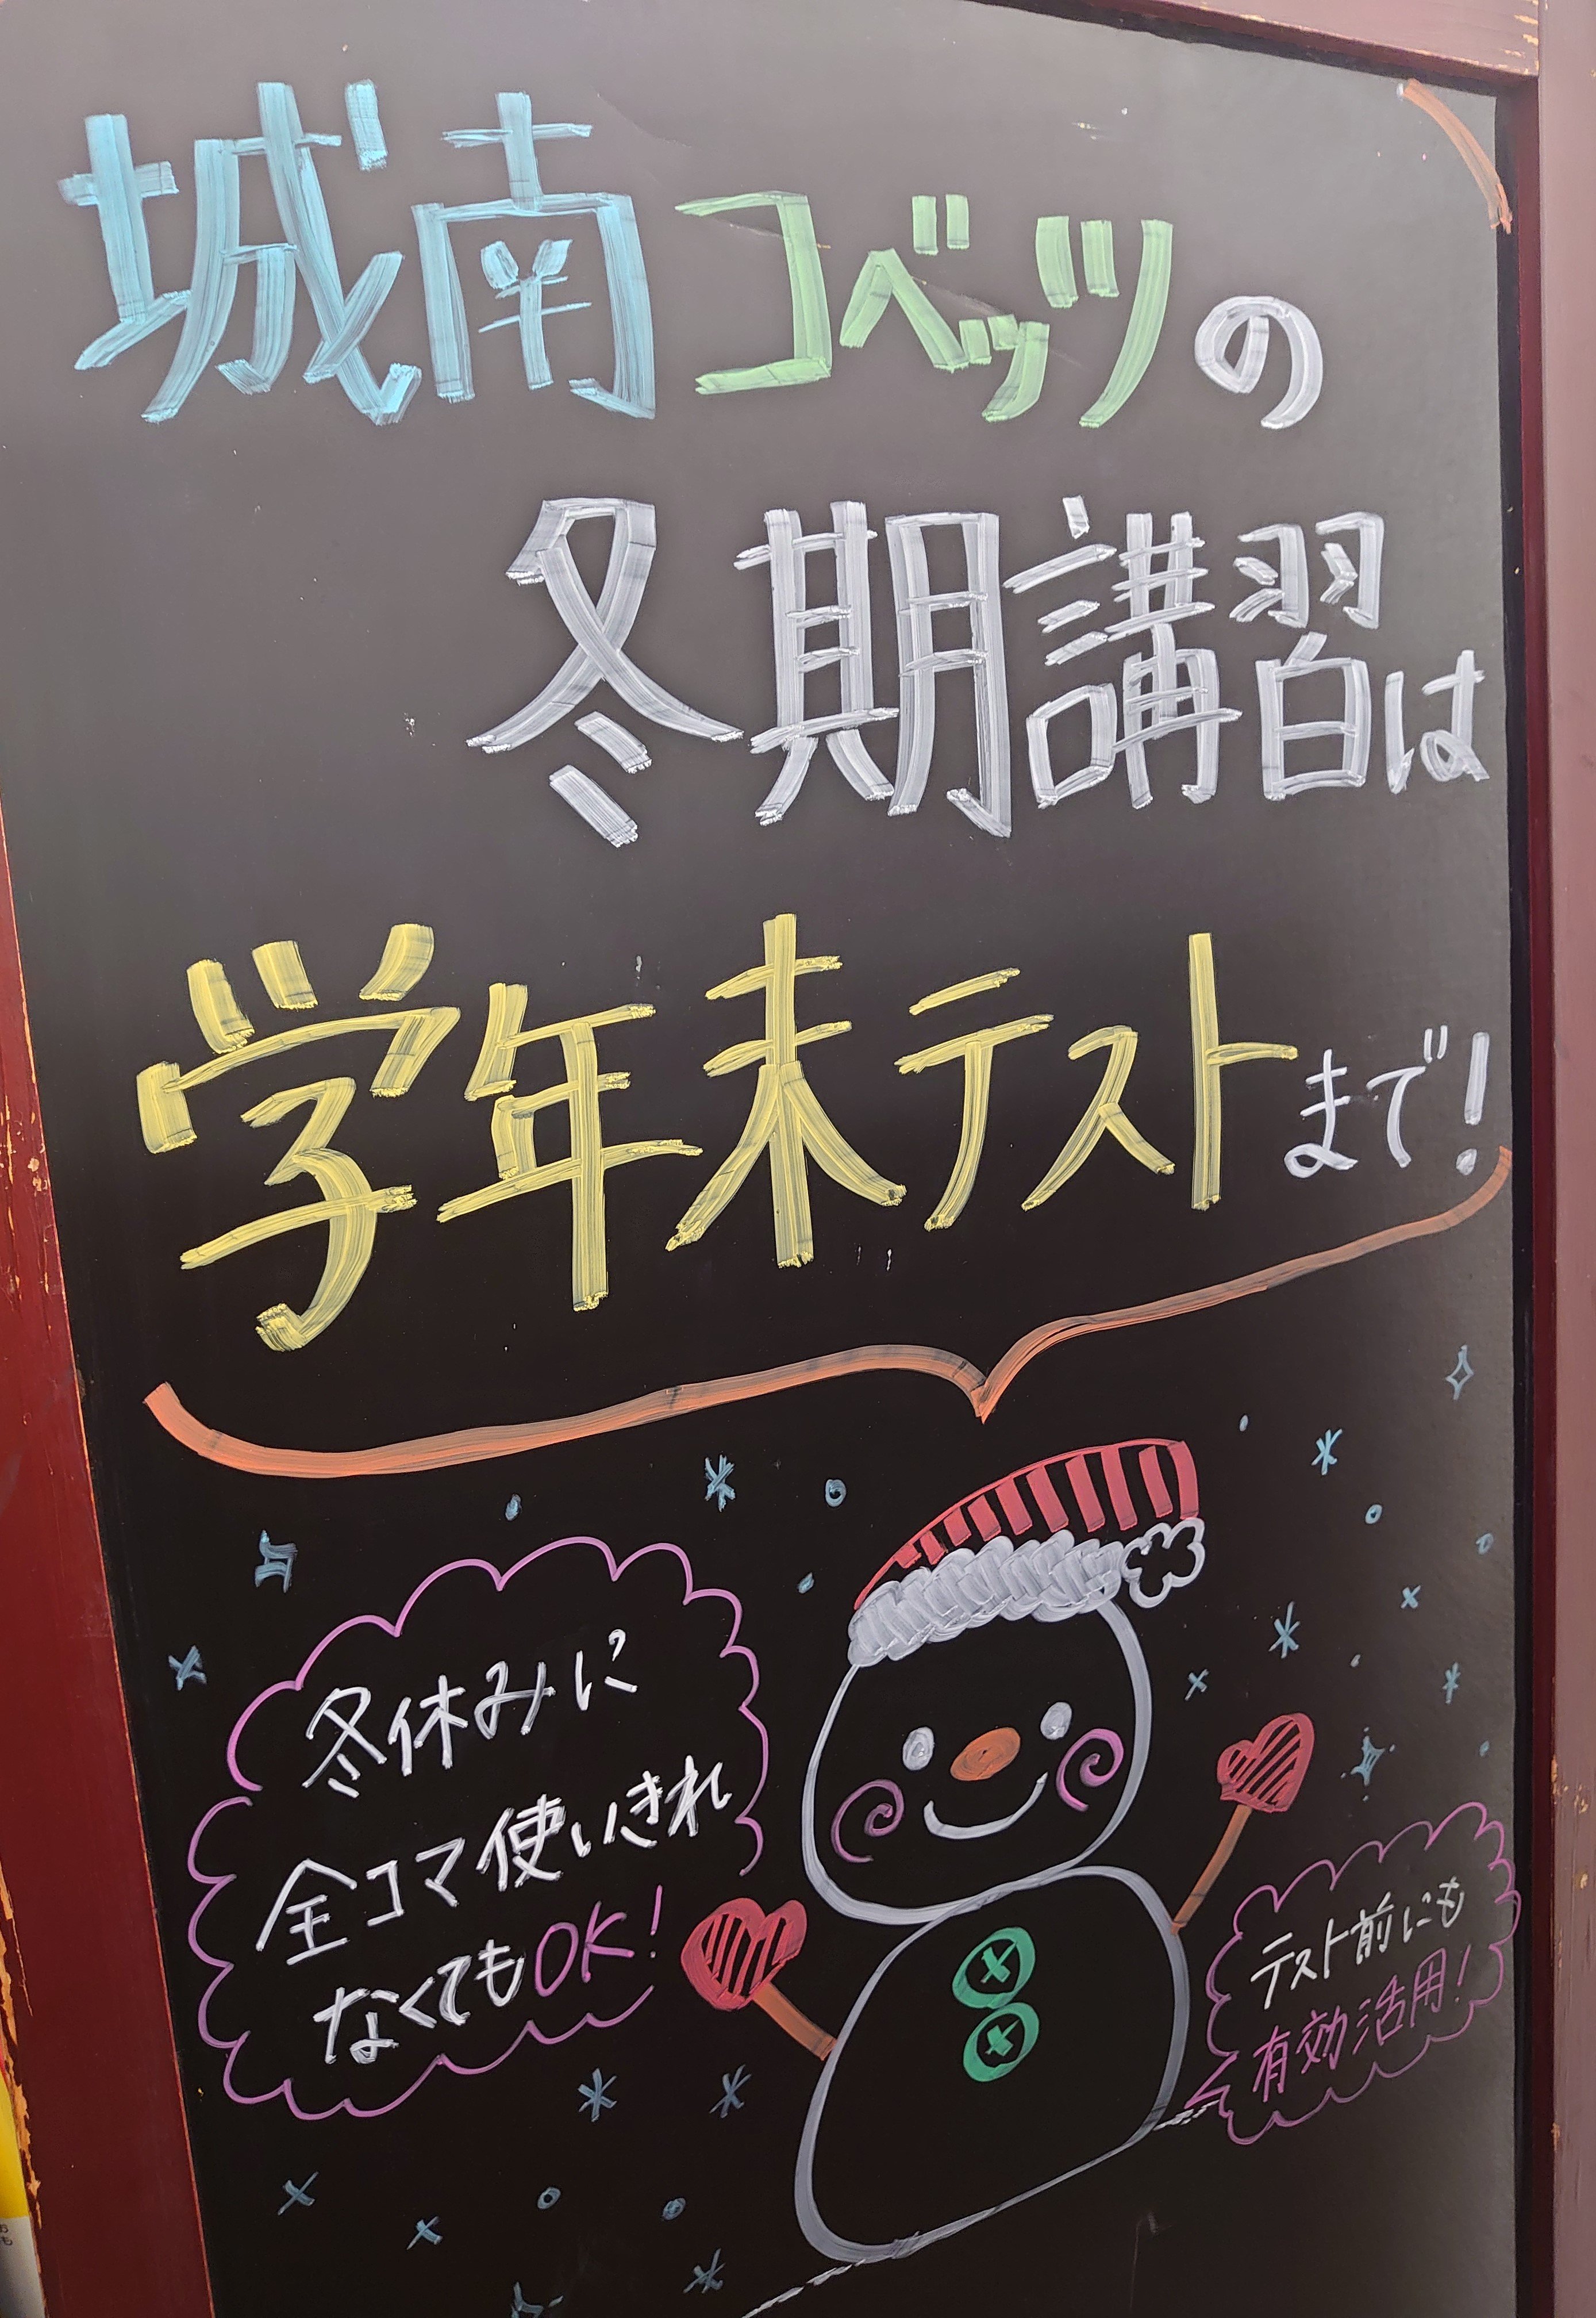 城南コベッツの
冬期講習は
学年末テストまで!
冬休みに
全コマ使いきれ
なくてもOK!
テスト前にも
有効活用!